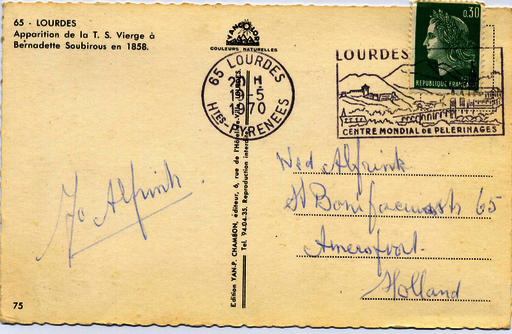 65 - LOURDES
Apparition de la T. S. Vierge à
Bernadette Soubirous en 1858.
YAN
COULEURS NATURELLES
65 LOURDES
20 H
19-5
1970
Htes-PYRENEES
LOURDES
CENTRE MONDIAL DE PELERINAGES
0,30
REPUBLIQUE FRANÇAISE
Jo Alfrink
Edition YAN-P. CHAMBON, éditeur, 6, rue de l'Hôtel-de-Ville
Tel. 94.04.35. Reproduction interdite
Ned Alfrink
St Bonifaciusstr 65
Amersfoort
Holland
75